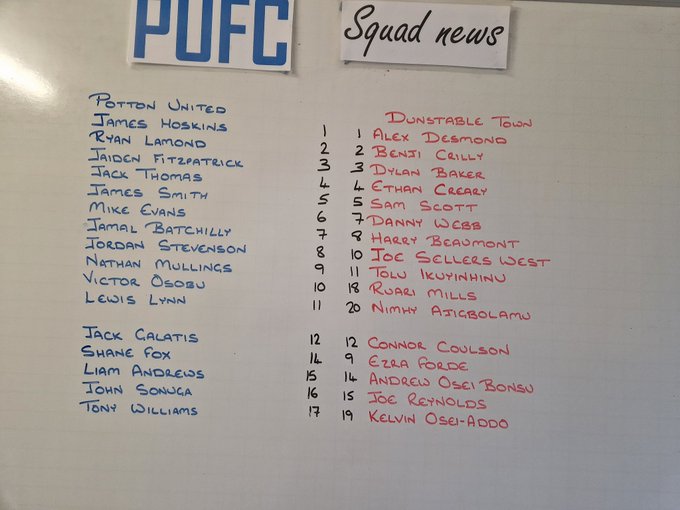 PUFC Squad news
POTTON UNITED DUNSTABLE TOWN
JAMES HOSKINS 1 1 ALEX DESMOND
RYAN LAMOND 2 2 BENJI CRILLY
JAIDEN FITZPATRICK 3 3 DYLAN BAKER
JACK THOMAS 4 4 ETHAN CREARY
JAMES SMITH 5 5 SAM SCOTT
MIKE EVANS 6 7 DANNY WEBB
JAMAL BATCHILLY 7 8 HARRY BEAUMONT
JORDAN STEVENSON 8 10 JOE SELLERS WEST
NATHAN MULLINGS 9 11 TOLU IKUYINHINU
VICTOR OSOBU 10 18 RUARI MILLS
LEWIS LYNN 11 20 NIMHY AJIGBOLAMU
JACK GALATIS 12 12 CONNOR COULSON
SHANE FOX 14 9 EZRA FORDE
LIAM ANDREWS 15 14 ANDREW OSEI BONSU
JOHN SONUGA 16 15 JOE REYNOLDS
TONY WILLIAMS 17 19 KELVIN OSEI-ADDO